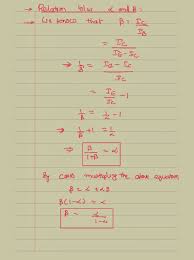 → Relation b/w α and β:-
→ We know that β = Ic/IB
= Ic/(IE-Ic)
⇒ 1/β = (IE-Ic)/Ic
= IE/Ic - 1
1/β = 1/α - 1
1/β + 1 = 1/α
⇒ β/(1+β) = α
By cross multiplying the above equation
β = α + αβ
β(1-α) = α
β = α/(1-α)